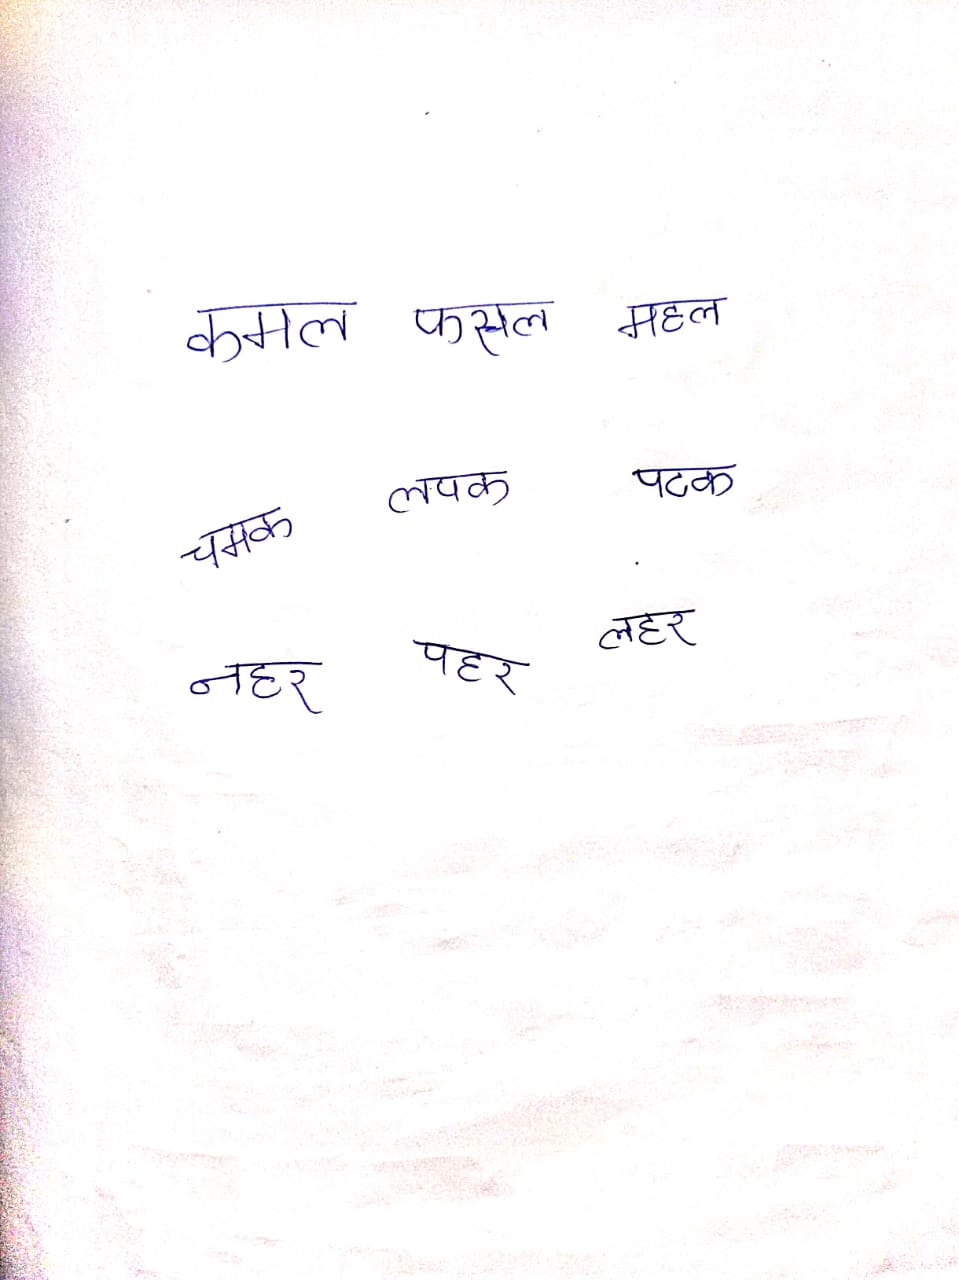 कमल फसल महल
चमक लपक पटक
नहर पहर लहर